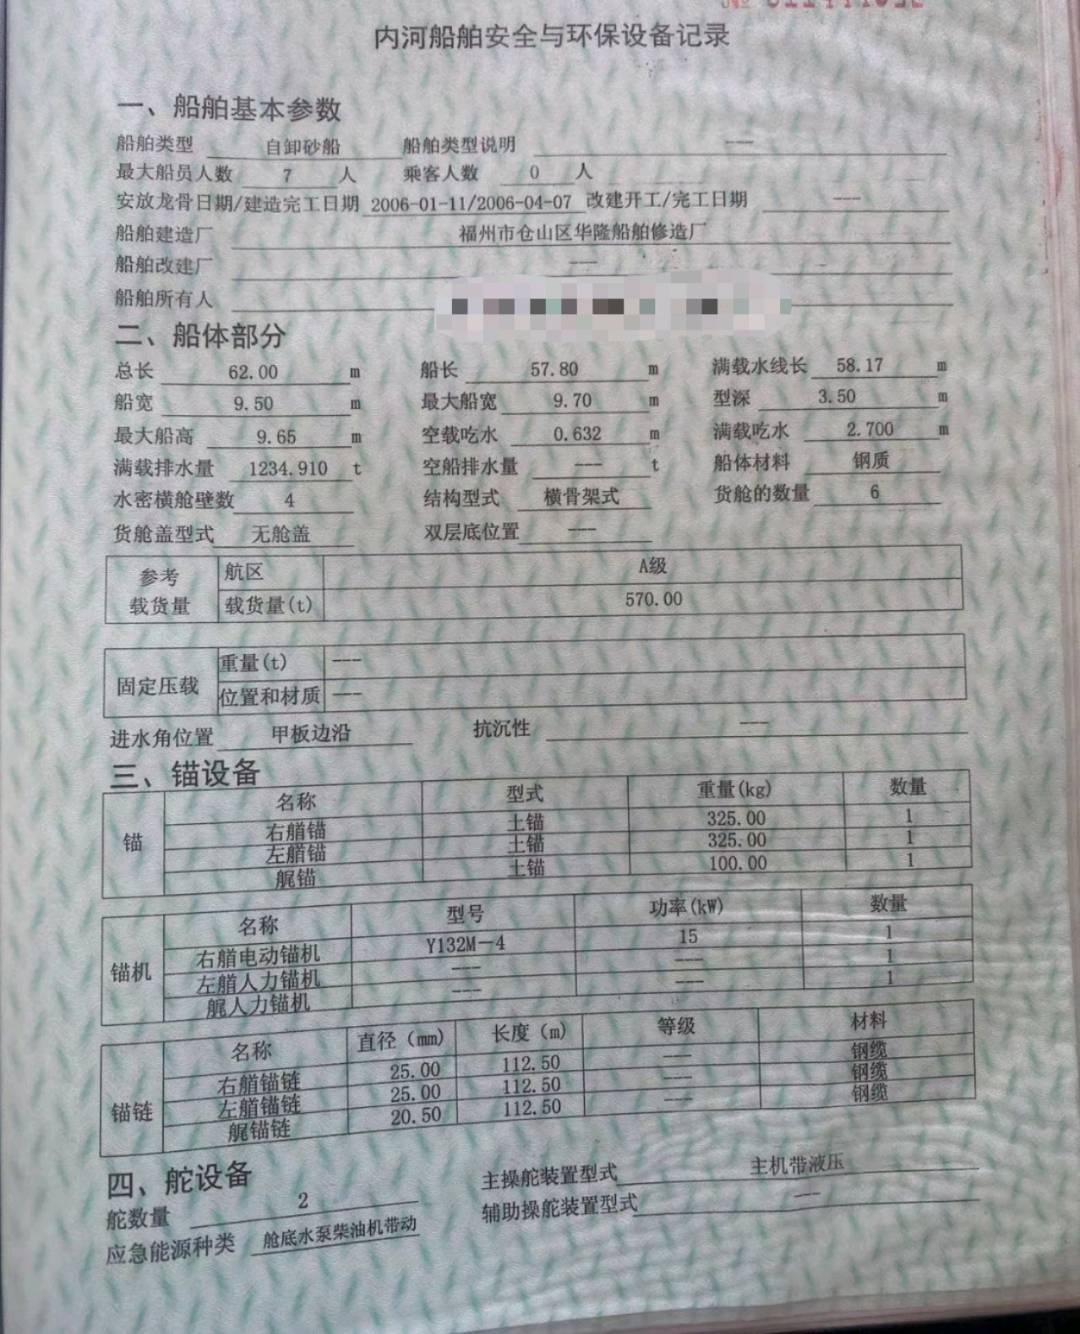 内河船舶安全与环保设备记录
一、船舶基本参数
船舶类型 自卸砂船 船舶类型说明 ---
最大船员人数 7 人 乘客人数 0 人
安放龙骨日期/建造完工日期 2006-01-11/2006-04-07 改建开工/完工日期 ---
船舶建造厂 福州市仓山区华隆船舶修造厂
船舶改建厂 ---
船舶所有人
二、船体部分
总长 62.00 m 船长 57.80 m 满载水线长 58.17 m
船宽 9.50 m 最大船宽 9.70 m 型深 3.50 m
最大船高 9.65 m 空载吃水 0.632 m 满载吃水 2.700 m
满载排水量 1234.910 t 空船排水量 --- t 船体材料 钢质
水密横舱壁数 4 结构型式 横骨架式 货舱的数量 6
货舱盖型式 无舱盖 双层底位置 ---
参考载货量 航区 A级
载货量(t) 570.00
固定压载 重量(t) ---
位置和材质 ---
进水角位置 甲板边沿 抗沉性 ---
三、锚设备
锚 名称 型式 重量(kg) 数量
右艏锚 土锚 325.00 1
左艏锚 土锚 325.00 1
艉锚 土锚 100.00 1
锚机 名称 型号 功率(kW) 数量
右艏电动锚机 Y132M-4 15 1
左艏人力锚机 --- --- 1
艉人力锚机 --- --- 1
锚链 名称 直径(mm) 长度(m) 等级 材料
右艏锚链 25.00 112.50 --- 钢缆
左艏锚链 25.00 112.50 --- 钢缆
艉锚链 20.50 112.50 --- 钢缆
四、舵设备
舵数量 2 主操舵装置型式 主机带液压
应急能源种类 舱底水泵柴油机带动 辅助操舵装置型式 ---